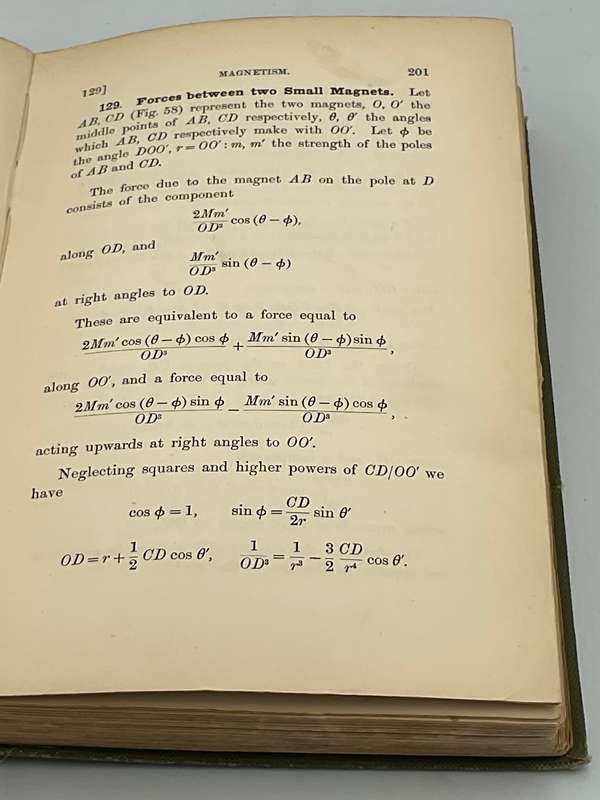 MAGNETISM. 201
129]
129. Forces between two Small Magnets. Let
AB, CD (Fig. 58) represent the two magnets, O, O′ the
middle points of AB, CD respectively, θ, θ′ the angles
which AB, CD respectively make with OO′. Let ϕ be
the angle DOO′, r = OO′: m, m′ the strength of the poles
of AB and CD.
The force due to the magnet AB on the pole at D
consists of the component
2Mm′/OD³ cos (θ − ϕ),
along OD, and
Mm′/OD³ sin (θ − ϕ)
at right angles to OD.
These are equivalent to a force equal to
2Mm′ cos (θ − ϕ) cos ϕ/OD³ + Mm′ sin (θ − ϕ) sin ϕ/OD³,
along OO′, and a force equal to
2Mm′ cos (θ − ϕ) sin ϕ/OD³ − Mm′ sin (θ − ϕ) cos ϕ/OD³,
acting upwards at right angles to OO′.
Neglecting squares and higher powers of CD/OO′ we
have
cos ϕ = 1, sin ϕ = CD/2r sin θ′
OD = r + 1/2 CD cos θ′, 1/OD³ = 1/r³ − 3/2 CD/r⁴ cos θ′.